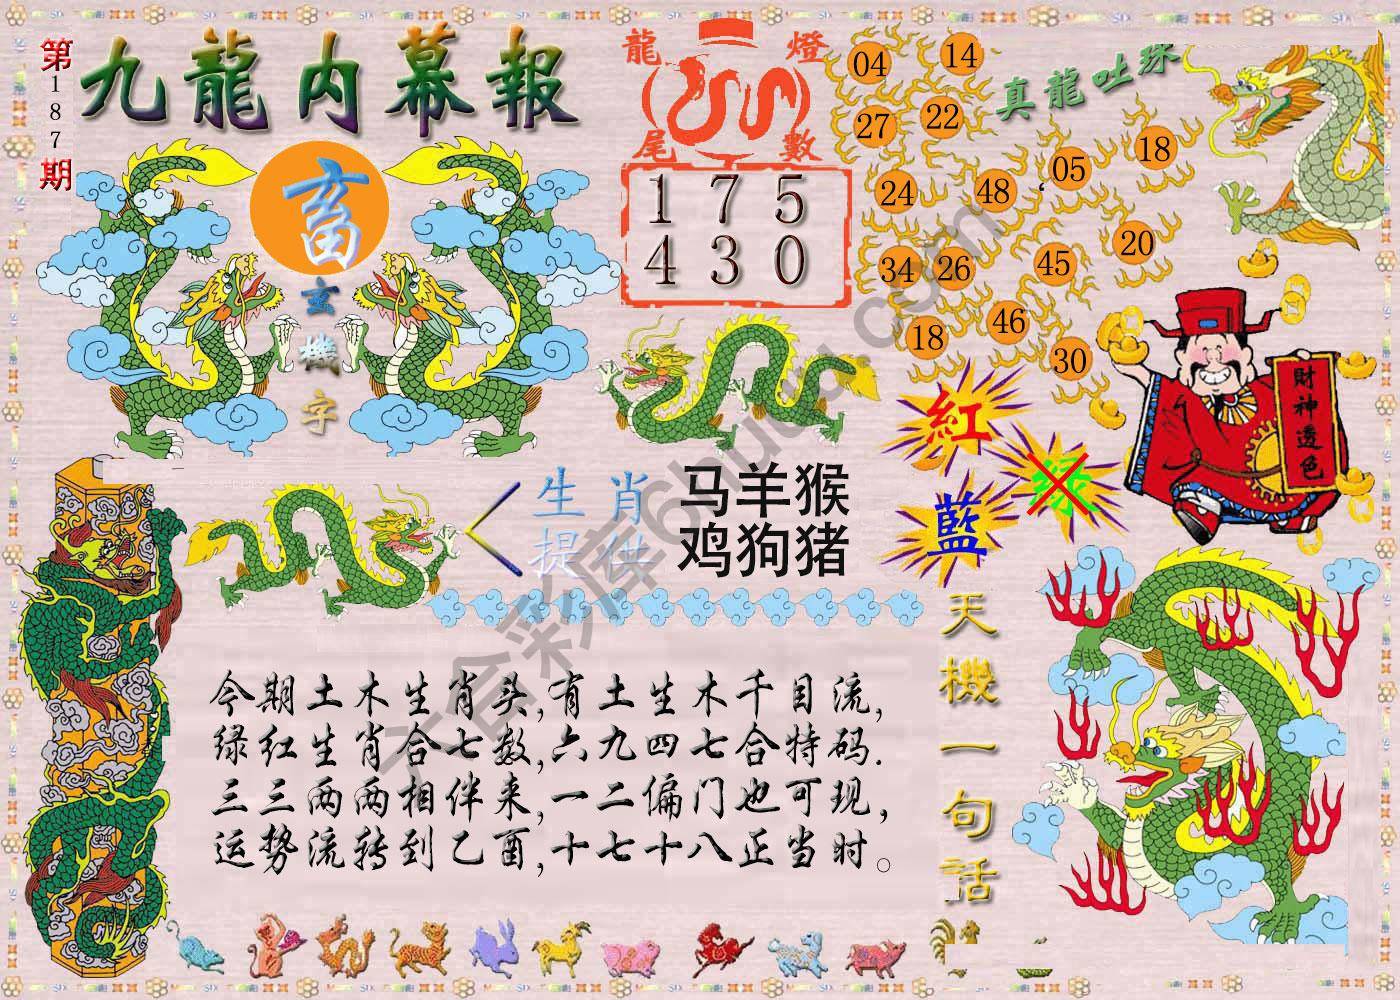 第187期
九龍内幕報
畜
玄機字
龍燈
尾數
1 7 5
4 3 0
真龍吐珠
04 14
27 22
24 48 05 18
34 26 45 20
18 46 30
財神透色
紅
绿
藍
生肖
提供
马羊猴
鸡狗猪
天機一句話
今期土木生肖头,有土生木千目流,
绿红生肖合七数,六九四七合特码.
三三两两相伴来,一二偏门也可现,
运势流转到乙酉,十七十八正当时。
六合彩库6huu.com